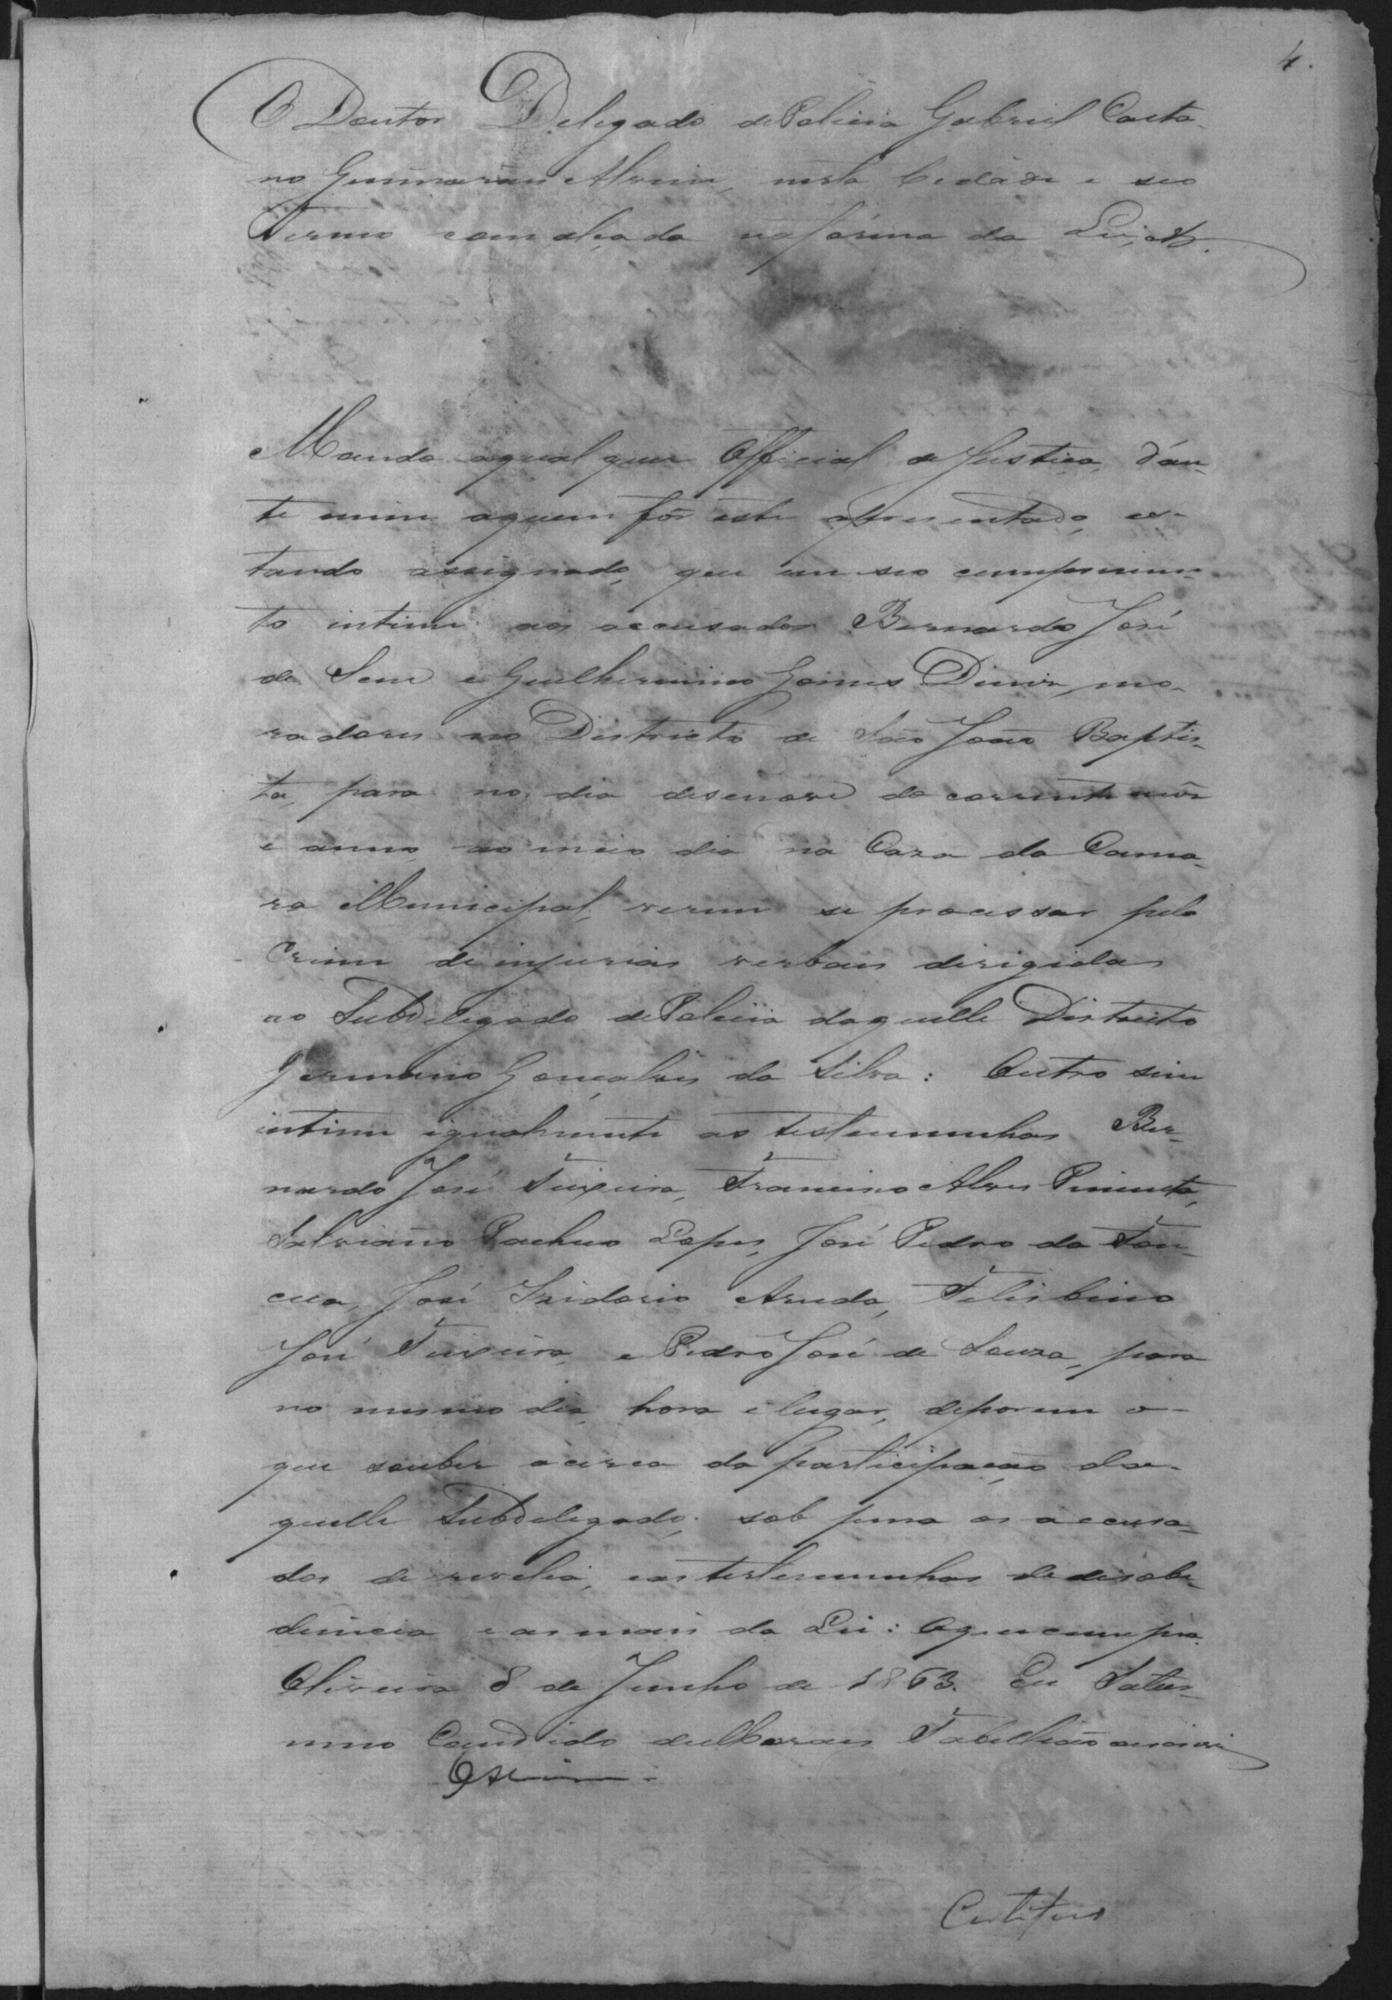 4.
O Doutor Delegado de Policia Gabriel Caeta-
no Guimarães Alvim, nesta Cidade e seo
Termo com alçada na fórma da Lei, etc.
Mando aqual quer Official de Justiça, d'an-
te mim aquem fôr este apresentado, es-
tando assignado, que em seo cumprimen-
to intime aos accusados Bernardo José
de Sene e Guilhermino Gomes Diniz, mo-
radores no Districto de São João Baptis-
ta, para no dia desenove do corrente mês
e anno, ao meio dia na Caza da Cama-
ra Municipal, verem se processar pelo
Crime de injurias verbais dirigidas
ao Subdelegado de Policia daquelle Districto
Germano Gonçalves da Silva: Outro sim
intime igualmente as testemunhas Ber-
nardo José Teixeira, Francisco Alves Pimenta,
Pacheco Lopes, José Pedro da Fon-
ceca, José Izidorio Aruda, Felisbino
José Teixeira, e Pedro José de Souza, para
no mesmo dia, hora e lugar, deporem o-
que souber acerca da participação da-
quelle Subdelegado; sob pena os accusa-
dos de revelia, e as testemunhas de desobe-
diencia e as mais da Lei: O que cumpra.
Oliveira 8 de Junho de 1863. Eu Satur-
nino Candido de Moraes Tabellião o escrevi
Alvim
Certifico